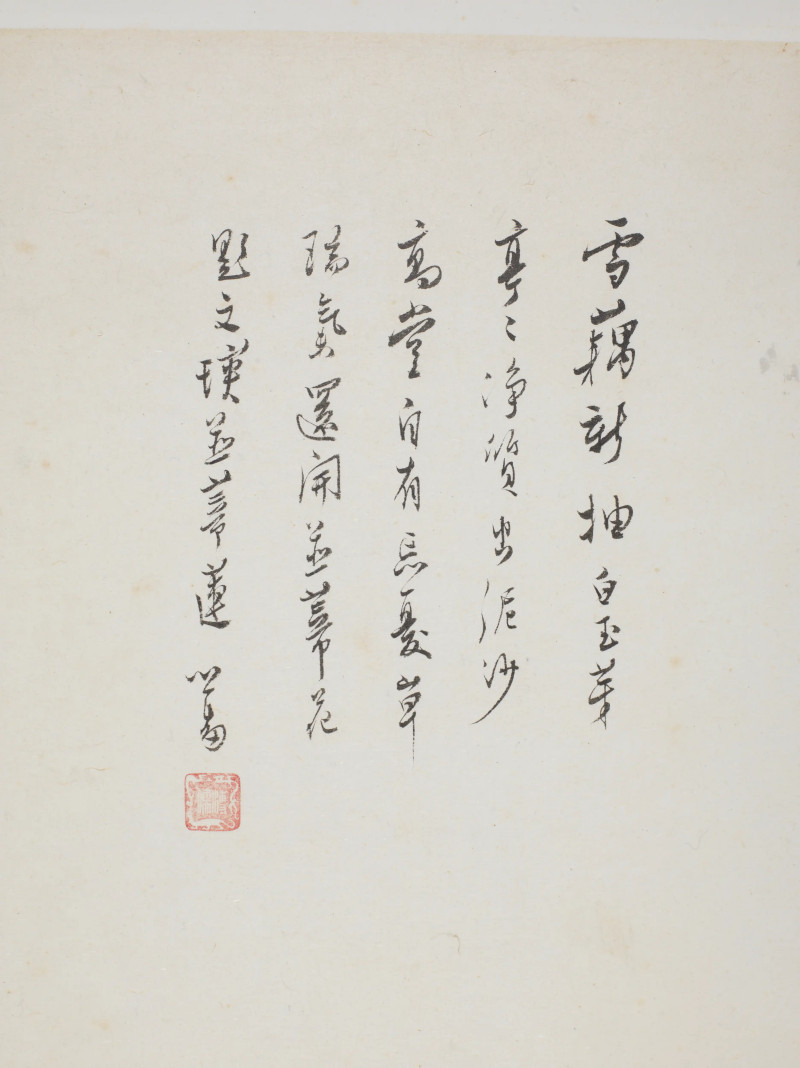 雪藕新抽白玉芽
亭〻淨質出泥沙
高堂自有忘憂草
瑞氣還開並蒂花
題文瑛並蒂蓮 心畬